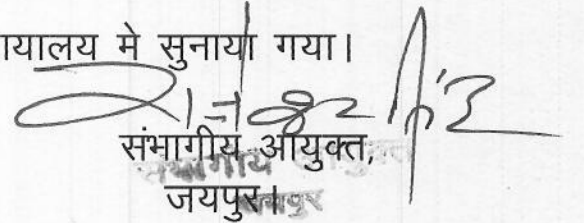 यालय मे सुनाया गया।
संभागीय आयुक्त,
जयपुर।